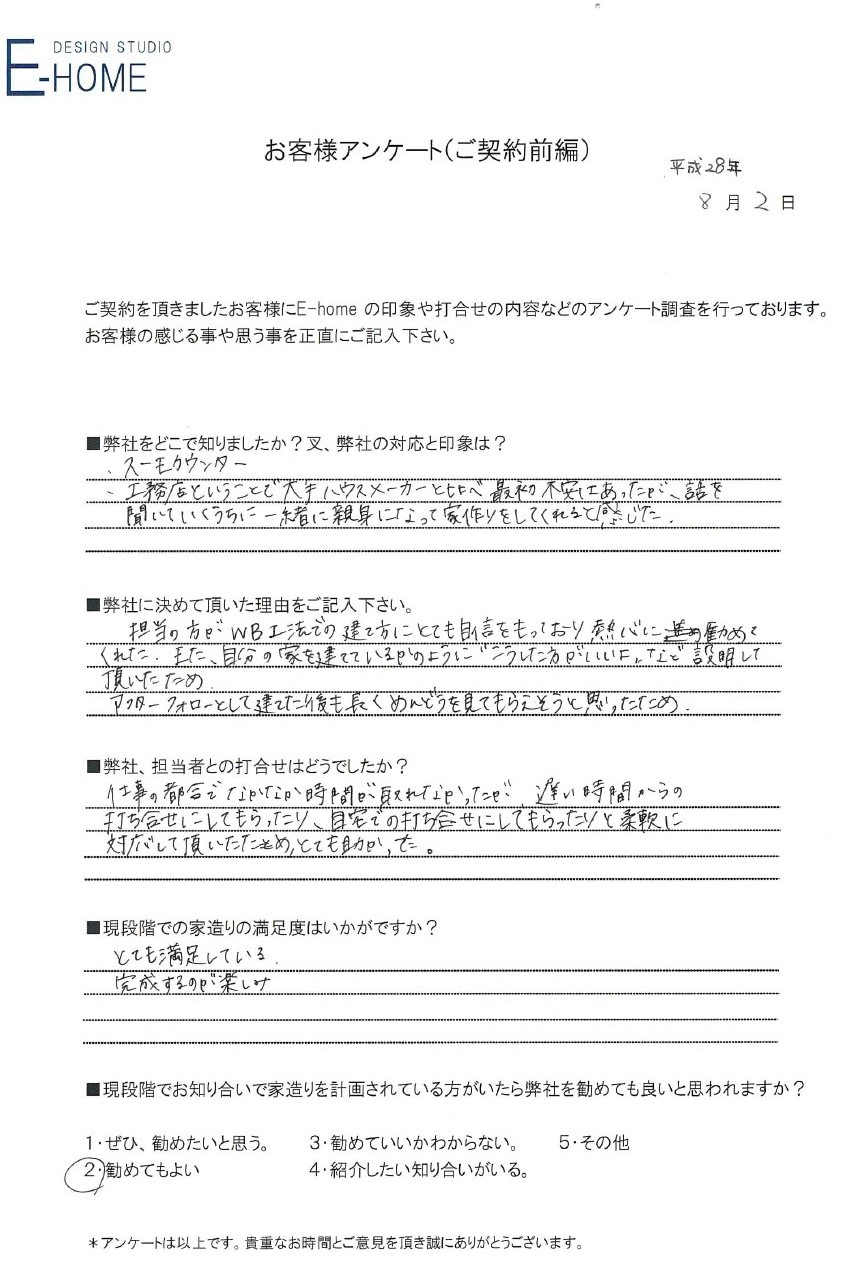 DESIGN STUDIO
E-HOME
お客様アンケート(ご契約前編)
平成28年
8月2日
ご契約を頂きましたお客様にE-home の印象や打合せの内容などのアンケート調査を行っております。
お客様の感じる事や思う事を正直にご記入下さい。
■弊社をどこで知りましたか?又、弊社の対応と印象は?
、スーモカウンター
、工務店ということで大手ハウスメーカーと比べ最初不安はあったが、話を
聞いていくうちに一緒に親身になって家作りをしてくれると感じた.
■弊社に決めて頂いた理由をご記入下さい。
担当の方がWB工法での建て方にとても自信をもっており熱心に勧めて
くれた. また、自分の家を建てているかのように"こうした方がいいよ"など説明して
頂いたため.
アフターフォローとして建てた後も長くめんどうを見てもらえそうと思ったため.
■弊社、担当者との打合せはどうでしたか?
仕事の都合でなかなか時間が取れなかったが 遅い時間からの
打ち合せにしてもらったり、自宅での打ち合せにしてもらったりと柔軟に
対応して頂いたため,とても助かった。
■現段階での家造りの満足度はいかがですか?
とても満足している.
完成するのが楽しみ
■現段階でお知り合いで家造りを計画されている方がいたら弊社を勧めても良いと思われますか?
1・ぜひ、勧めたいと思う。 3・勧めていいかわからない。 5・その他
2・勧めてもよい 4・紹介したい知り合いがいる。
*アンケートは以上です。貴重なお時間とご意見を頂き誠にありがとうございます。